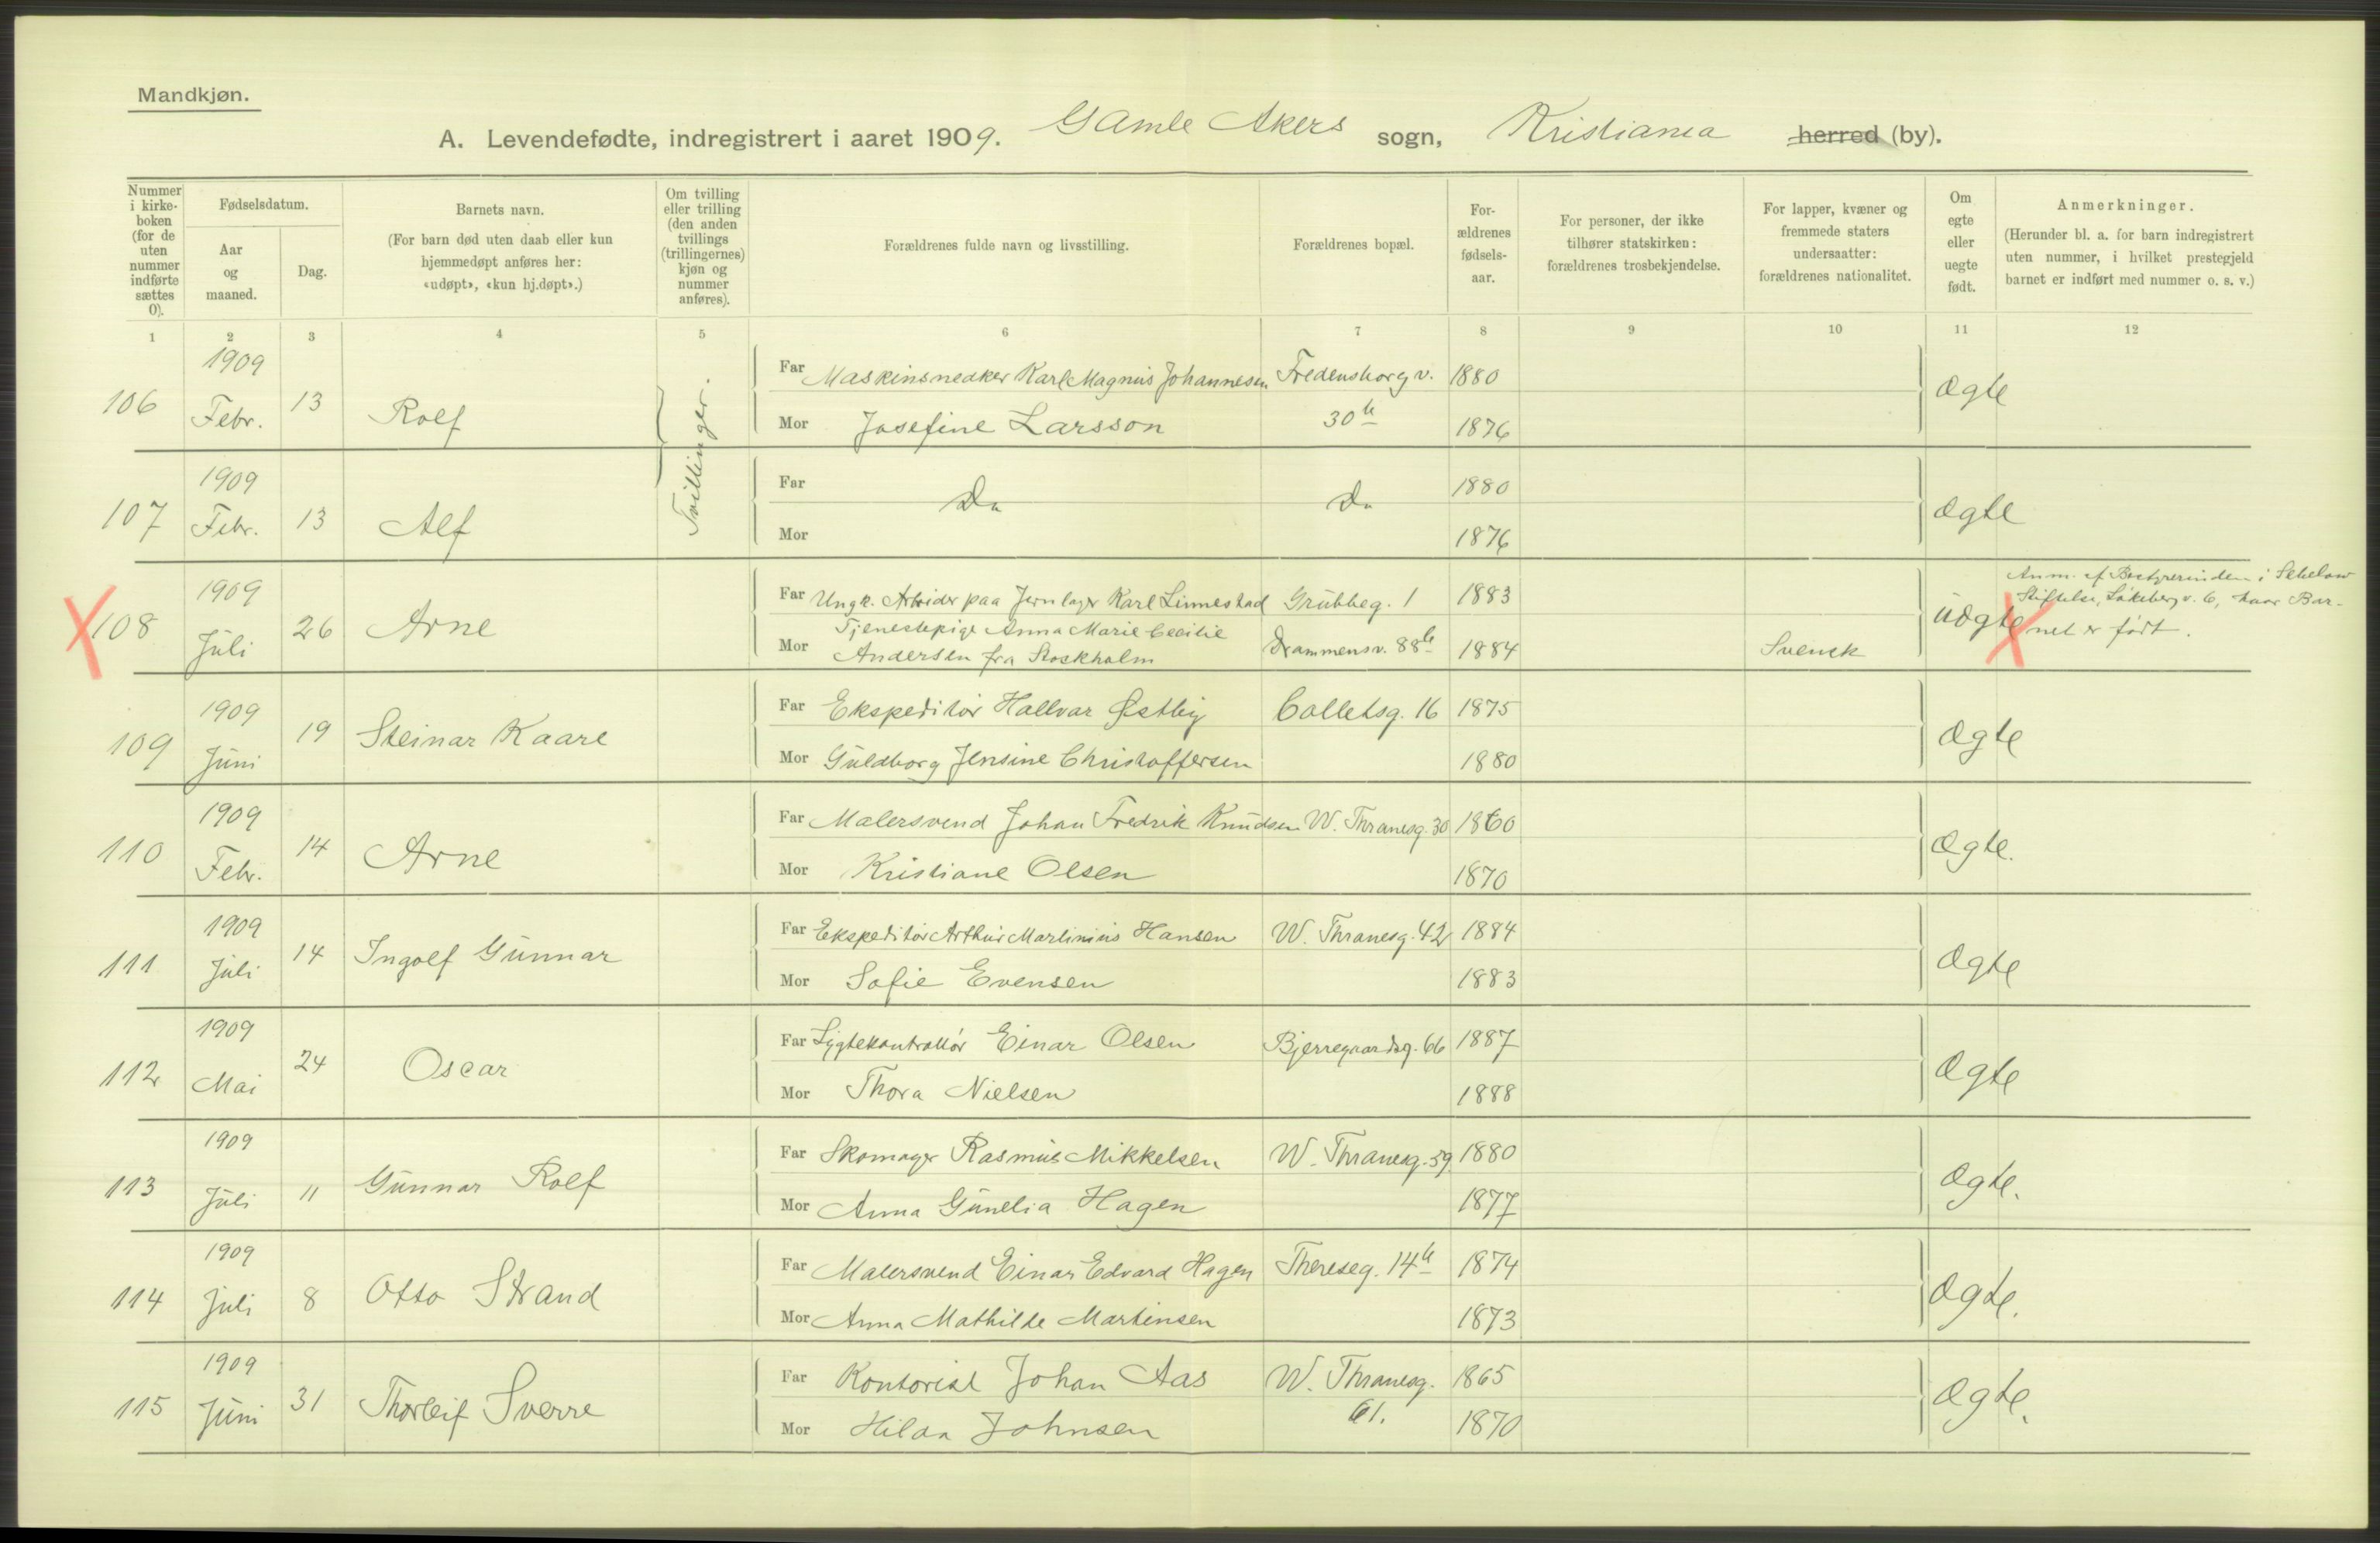 Mandkjøn.
A. Levendefødte, indregistrert i aaret 1909. Gamle Akers sogn, Kristiania herred (by).
Nummer i kirke-boken (for de uten nummer indførte sættes 0).
Fødselsdatum.
Aar og maaned.
Dag.
Barnets navn.
(For barn død uten daab eller kun hjemmedøpt anføres her: «udøpt», «kun hj.døpt».)
Om tvilling eller trilling (den anden tvillings (trillingernes) kjøn og nummer anføres).
Forældrenes fulde navn og livsstilling.
Forældrenes bopæl.
For-ældrenes fødsels-aar.
For personer, der ikke tilhører statskirken: forældrenes trosbekjendelse.
For lapper, kvæner og fremmede staters undersaatter: forældrenes nationalitet.
Om egte eller uegte født.
Anmerkninger.
(Herunder bl. a. for barn indregistrert uten nummer, i hvilket prestegjeld barnet er indført med nummer o. s. v.)
1 2 3 4 5 6 7 8 9 10 11 12
106 1909 Febr. 13 Rolf Tvillinger.
Far Maskinsnedker Karl Magnus Johannesen Fredensborgv. 1880
Mor Josefine Larsson 30b 1876 Ægte
107 1909 Febr. 13 Alf
Far Do Do 1880
Mor 1876 Ægte
108 1909 Juli 26 Arne
Far Ungk. Arbeider paa Jernlager Karl Linnestad Grübbeg. 1 1883
Mor Tjenestepige Anna Marie Cecilie
Andersen fra Stockholm Drammensv. 88b 1884 Svensk Uægte
Anm. af Bestyrerinden i Schelow
Stiftelse, v. 6, hvor Bar-
net er født.
109 1909 Juni 19 Steinar Kaare
Far Ekspeditør Hallvar Østby Colletsg. 16 1875
Mor Guldborg Jensine Christoffersen 1880 Ægte
110 1909 Febr. 14 Arne
Far Malersvend Johan Fredrik Knudsen W. Thranesg. 30 1860
Mor Kristiane Olsen 1870 Ægte.
111 1909 Juli 14 Ingolf Gunnar
Far Ekspeditør Arthur Martinius Hansen W. Thranesg. 42 1884
Mor Sofie Evensen 1883 Ægte
112 1909 Mai 24 Oscar
Far Lygtekontrollør Einar Olsen Bjerregaardsg. 66 1887
Mor Thora Nielsen 1888 Ægte
113 1909 Juli 11 Gunnar Rolf
Far Skomager Rasmus Mikkelsen W. Thranesg. 59. 1880
Mor Anna Gunelia Hagen 1877 Ægte.
114 1909 Juli 8 Otto Strand
Far Malersvend Einar Edvard Hagen Thereseg. 14b 1874
Mor Anna Mathilde Martinsen 1873 Ægte.
115 1909 Juni 31 Thorleif Sverre
Far Kontorist Johan Aas W. Thranesg. 1865
Mor Hilda Johnsen 61. 1870 Ægte.